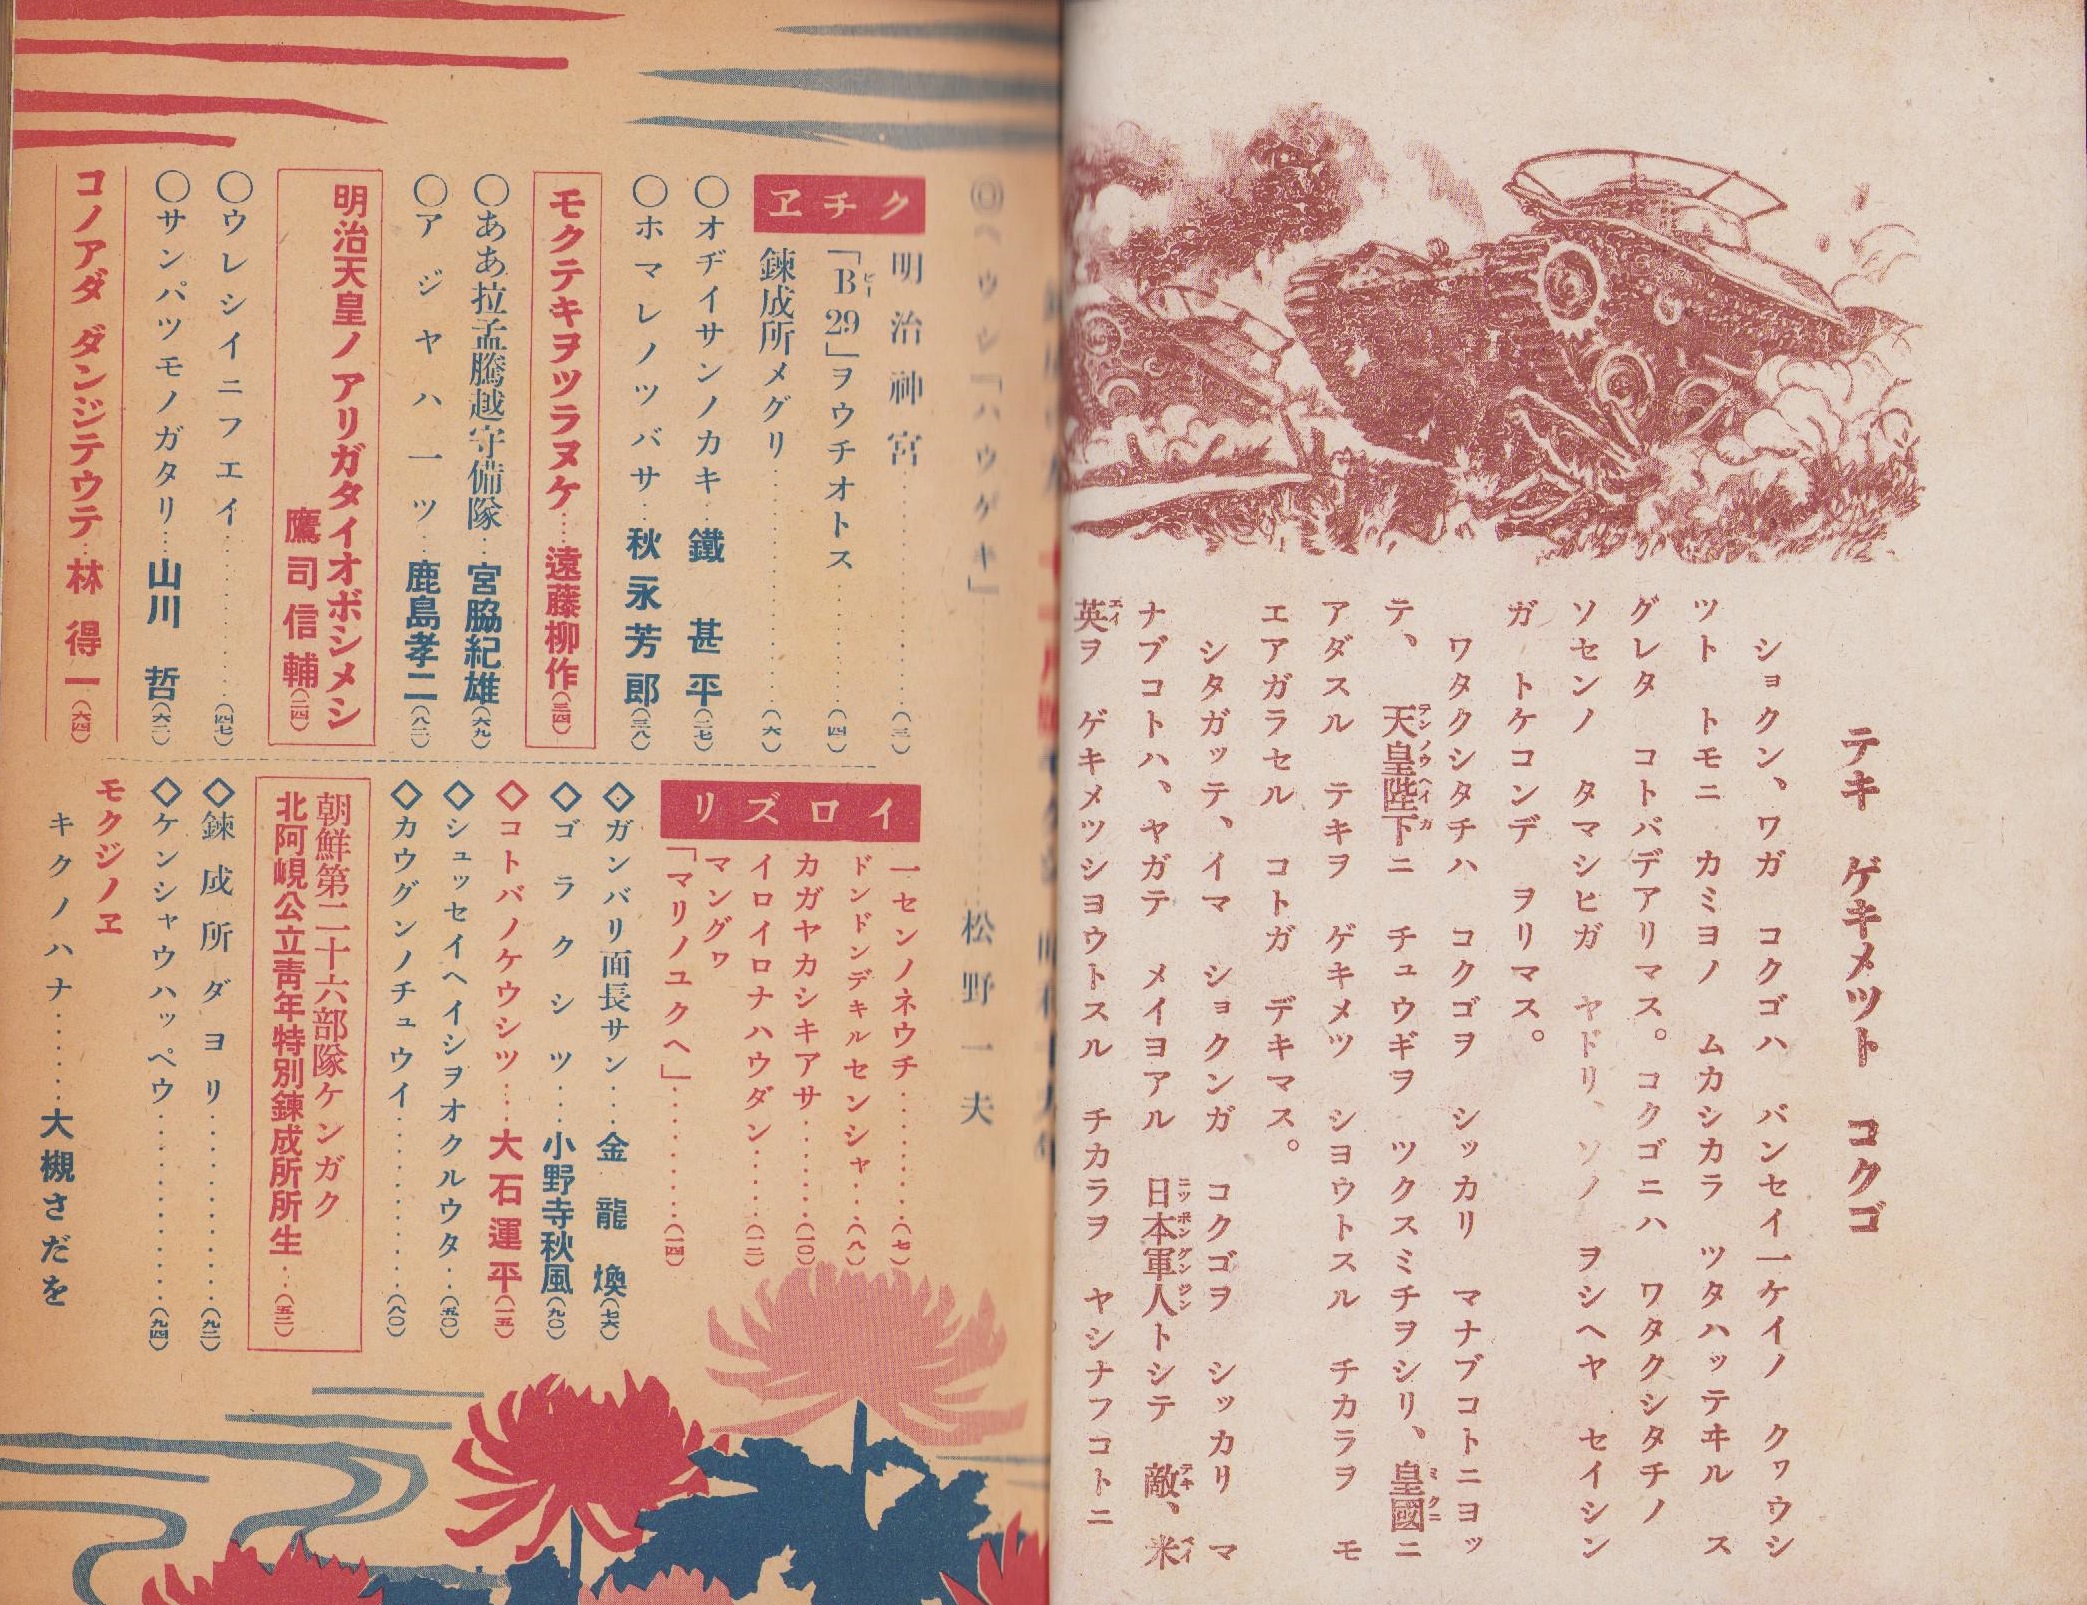 テキ ゲキメツト コクゴ
ショクン、ワガ コクゴハ バンセイ一ケイノ クヮウシ
ツト トモニ カミヨノ ムカシカラ ツタハッテヰル ス
グレタ コトバデアリマス。コクゴニハ ワタクシタチノ
ソセンノ タマシヒガ ヤドリ、ソノ ヲシヘヤ セイシン
ガ トケコンデ ヲリマス。
ワタクシタチハ コクゴヲ シッカリ マナブコトニヨッ
テ、天皇陛下ニ チュウギヲ ツクスミチヲシリ、皇國ニ
テンノウヘイカ
ミクニ
アダスル テキヲ ゲキメツ シヨウトスル チカラヲ モ
エアガラセル コトガ デキマス。
シタガッテ、イマ ショクンガ コクゴヲ シッカリ マ
ナブコトハ、ヤガテ メイヨアル 日本軍人トシテ 敵、米
ニッポングンジン
テキ
ベイ
英ヲ ゲキメツシヨウトスル チカラヲ ヤシナフコトニ
エイ
◎ヘウシ「ハウゲキ」 松野一夫
クチヱ
明治神宮(三)
「B29」ヲウチオトス(四)
ビー
鍊成所メグリ(六)
○オヂイサンノカキ 鐵甚平(二七)
○ホマレノツバサ 秋永芳郎(三八)
モクテキヲツラヌケ 遠藤柳作(三四)
○ああ拉孟騰越守備隊 宮脇紀雄(六九)
○アジヤハ一ツ 鹿島孝二(八二)
明治天皇ノアリガタイオボシメシ
鷹司信輔(二四)
○ウレシイニフエイ(四七)
○サンパツモノガタリ 山川哲(六二)
コノアダ ダンジテウテ 林得一(六四)
イロズリ
一センノネウチ(七)
ドンドンデキルセンシャ(八)
カガヤカシキアサ(一〇)
イロイロナハウダン(一二)
マングヮ
「マリノユクヘ」(一四)
◇ガンバリ面長サン 金龍煥(七六)
◇ゴラクシツ 小野寺秋風(九〇)
◇コトバノケウシツ 大石運平(一五)
◇シュッセイヘイシヲオクルウタ(五〇)
◇カウグンノチュウイ(八〇)
朝鮮第二十六部隊ケンガク
北阿峴公立靑年特別鍊成所所生(五二)
◇鍊成所ダヨリ(九二)
◇ケンシャウハッペウ(九四)
モクジノヱ
キクノハナ 大槻さだを